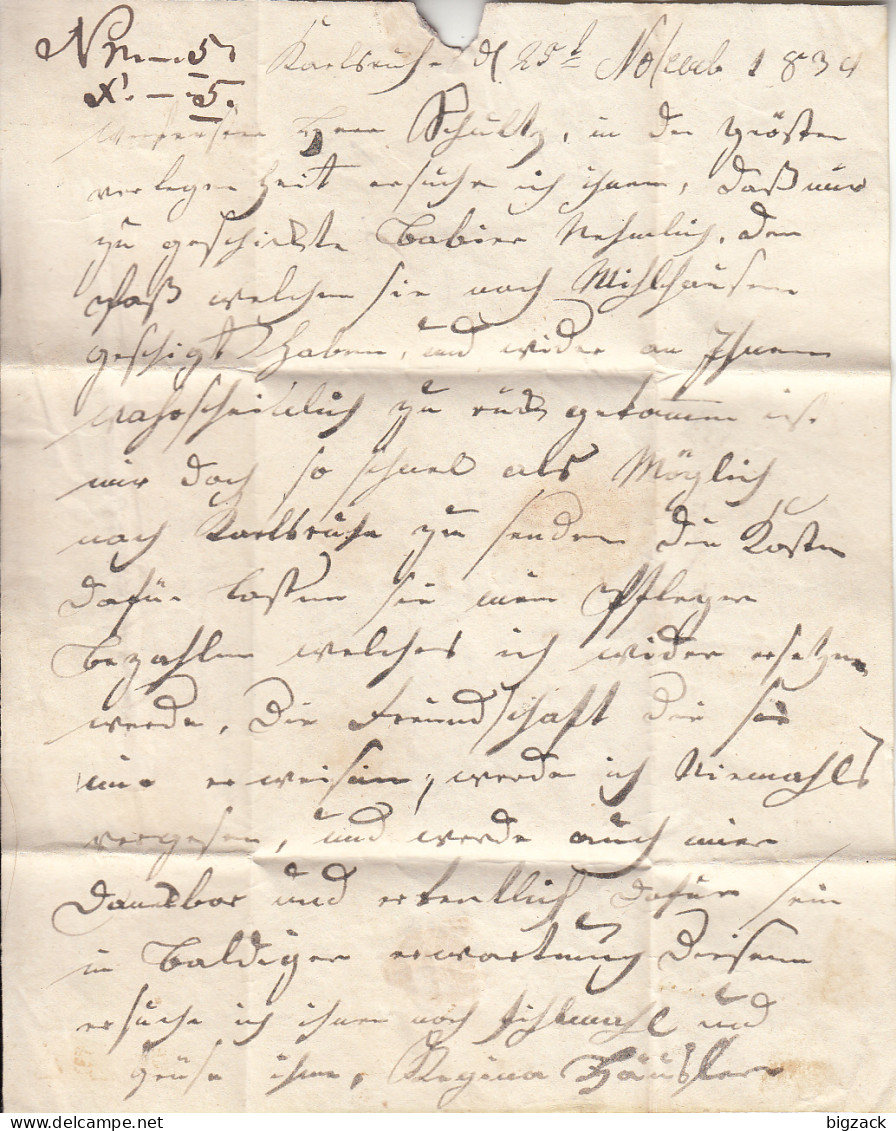 Karlsruh d 25t Novemb 1834
Herr Schultz, in der grösten
verlegenheit ersuche ich ihnen, daß mir
zu geschickte Babier Nehmlich, den
Paß welchen sie nach Mihlhausen
geschigt haben, und wider an Ihnen
wahrscheinlich zu rück gekommen ist
mir doch so schnel als Möglich
nach Karlsruhe zu senden die Kosten
dafür lassen sie mein Pfleger
bezahlen welches ich wider ersetzen
werde, die Freundschaft die sie
mir erweisen, werde ich Niemahls
vergesen, und werde auch mier
Dankbar und erkentlich dafür sein
in Baldiger erwartung diesem
ersuche ich ihnen noch und
grüse ihnen, Regina Häusler
bigzack